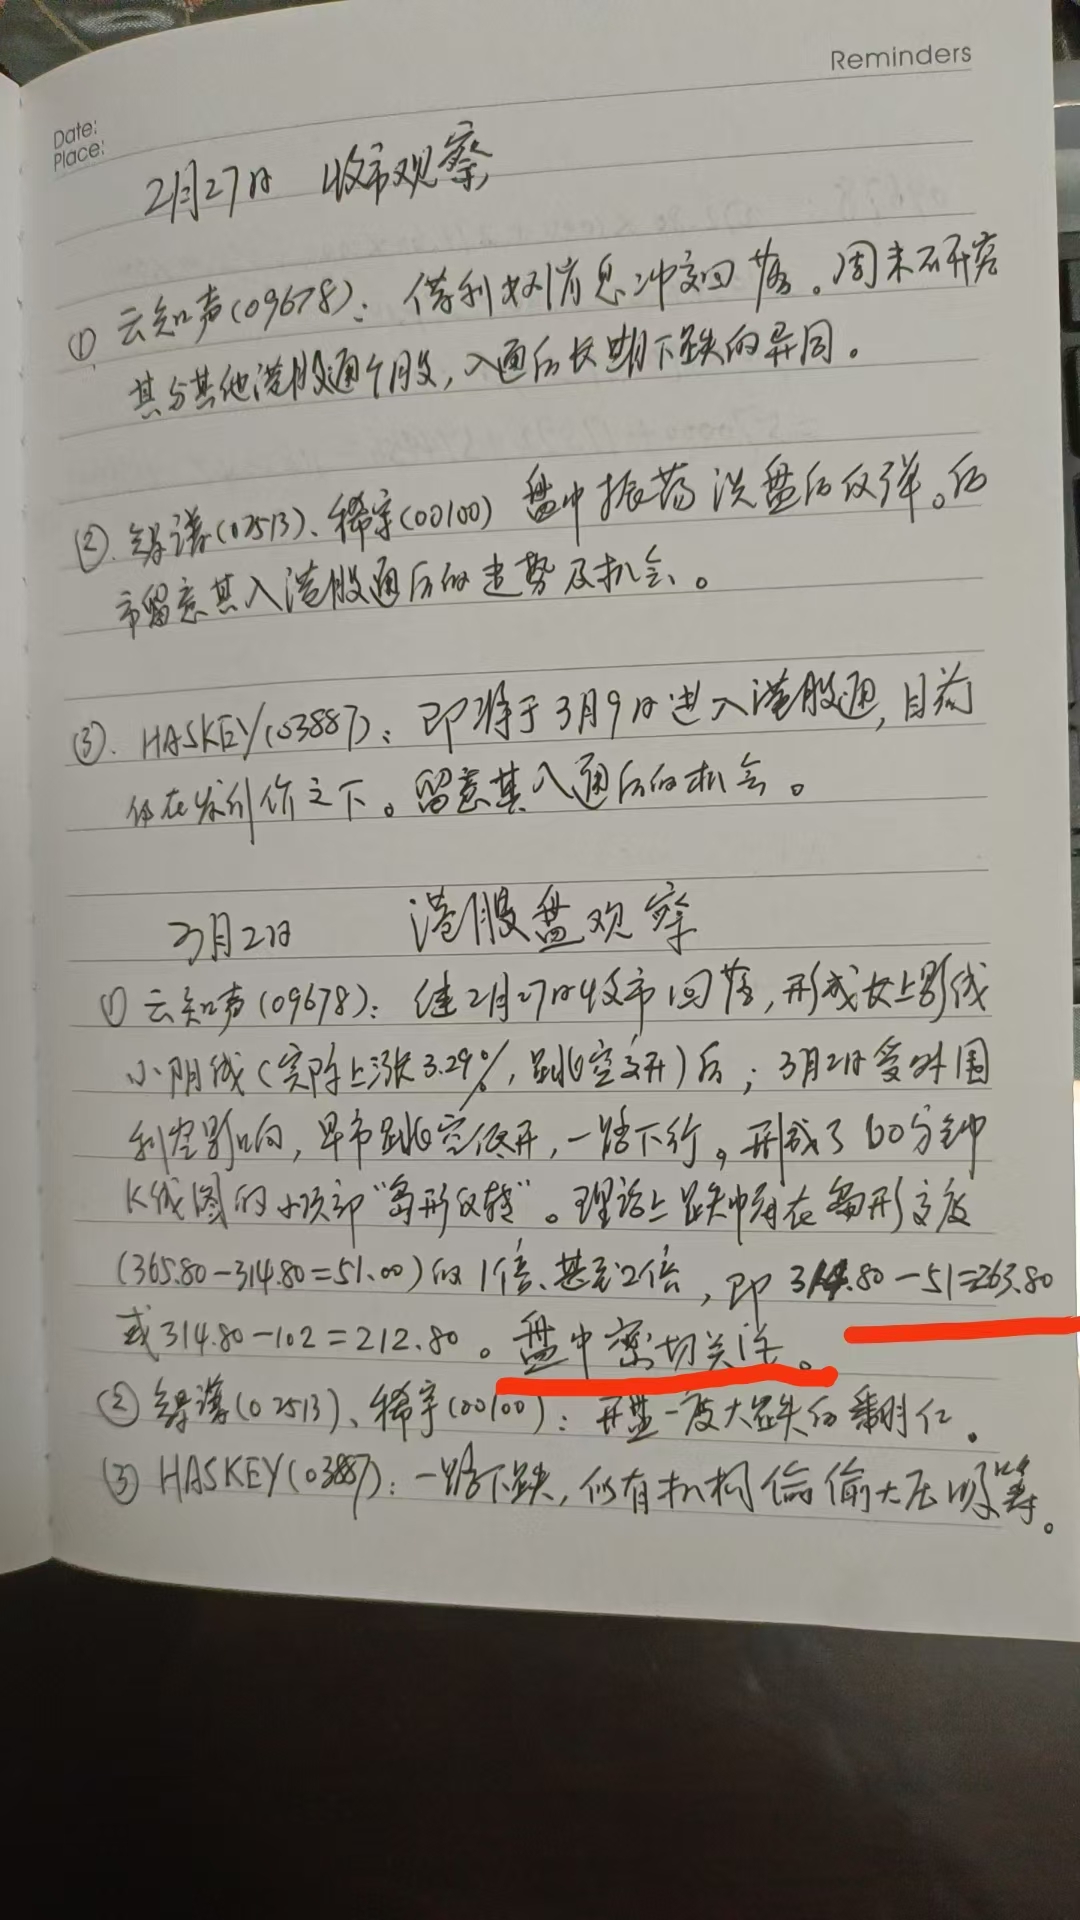 Reminders
Date:
Place:
2月27日 收市观察
① 云知声(09678): 借利好消息冲高回落。周末可研究
其与其他港股通个股,入通后长期下跌的异同。
②. 智谱(02513)、稀宇(00100) 盘中振荡洗盘后反弹。后
市留意其入港股通后的走势及机会。
③. HASKEY(03887): 即将于3月9日进入港股通,目前
仍在发行价之下。留意其入通后的机会。
3月2日 港股盘观察
① 云知声(09678): 继2月27日收市回落,形成长上影线
小阴线(实际上涨3.29%,跳空高开)后;3月2日受外围
利空影响,早市跳空低开,一路下行。形成了60分钟
K线图的小顶部“岛形反转”。理论上跌幅在岛形高度
(365.80-314.80=51.00)的1倍、甚至2倍,即314.80-51=263.80
或314.80-102=212.80。盘中密切关注。
② 智谱(02513)、稀宇(00100): 开盘一度大跌后翻红。
③ HASKEY(03887): 一路下跌,似有机构偷偷大压吸筹。